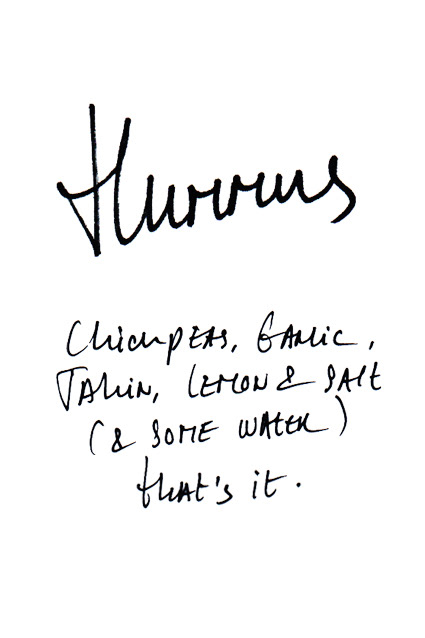 Hummus
Chickpeas, Garlic,
Tahin, Lemon & Salt
(& some water)
that's it.